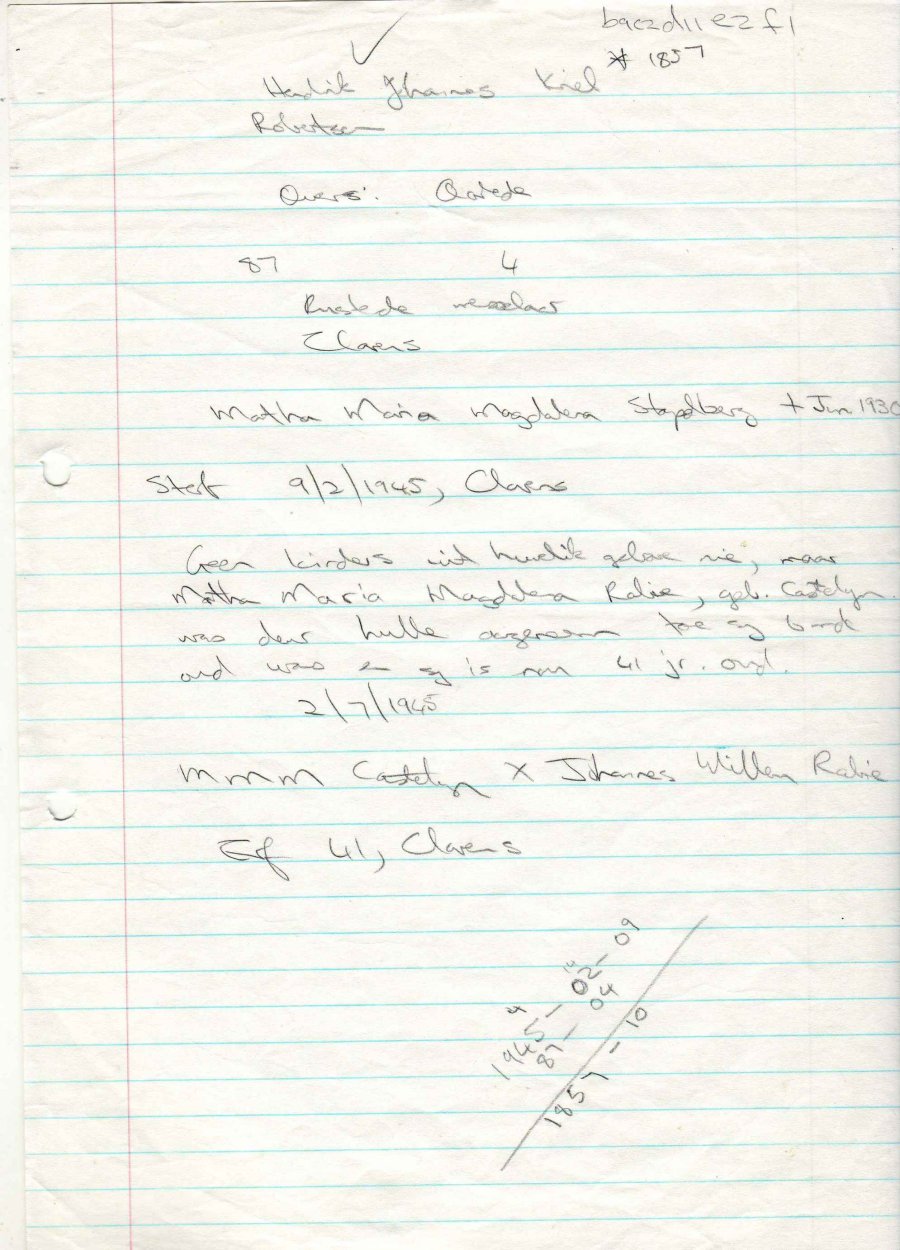 b9c2d11e2f1
* 1857
Hendrik Johannes Kriel
Robertson
Ouers: Oorlede
87 4
Rustede
Clarens
Martha Maria Magdalena Stapelberg + Jun 1930
Sterf 9/2/1945, Clarens
Geen kinders uit huwelik gebore nie, maar
Martha Maria Magdalena Rabie, geb. Castelyn.
was deur hulle aangeneem toe sy 6 mde
oud was en sy is nou 41 jr. oud.
2/7/1945
MMM Castelyn X Johannes Willem Rabie
Erf 41, Clarens
4 14
1945 - 02 - 09
87 - 04
1857 - 10